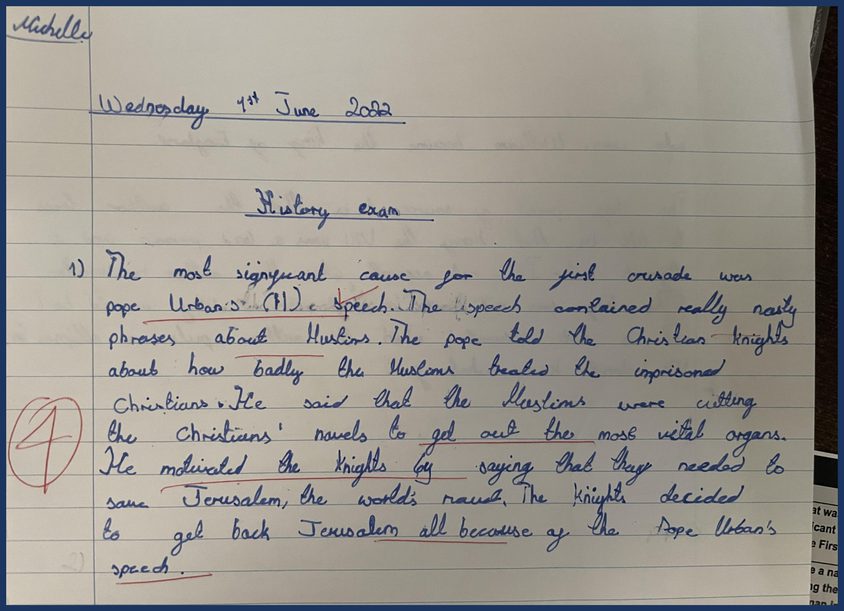 Michelle
Wednesday 1st June 2022
History exam
1) The most signyicant cause for the first crusade was
pope Urban's (II) speech. The speech contained really nasty
phrases about Muslims. The pope told the Christian knights
about how badly the Muslims treated the imprisoned
Christians. He said that the Muslims were cutting
the Christians' navels to get out the most vital organs.
He motivated the knights by saying that they needed to
save Jerusalem, the world's navel. The knights decided
to get back Jerusalem all because of the Pope Urban's
speech.
4
at wa
icant
e Firs
e a na
ng the